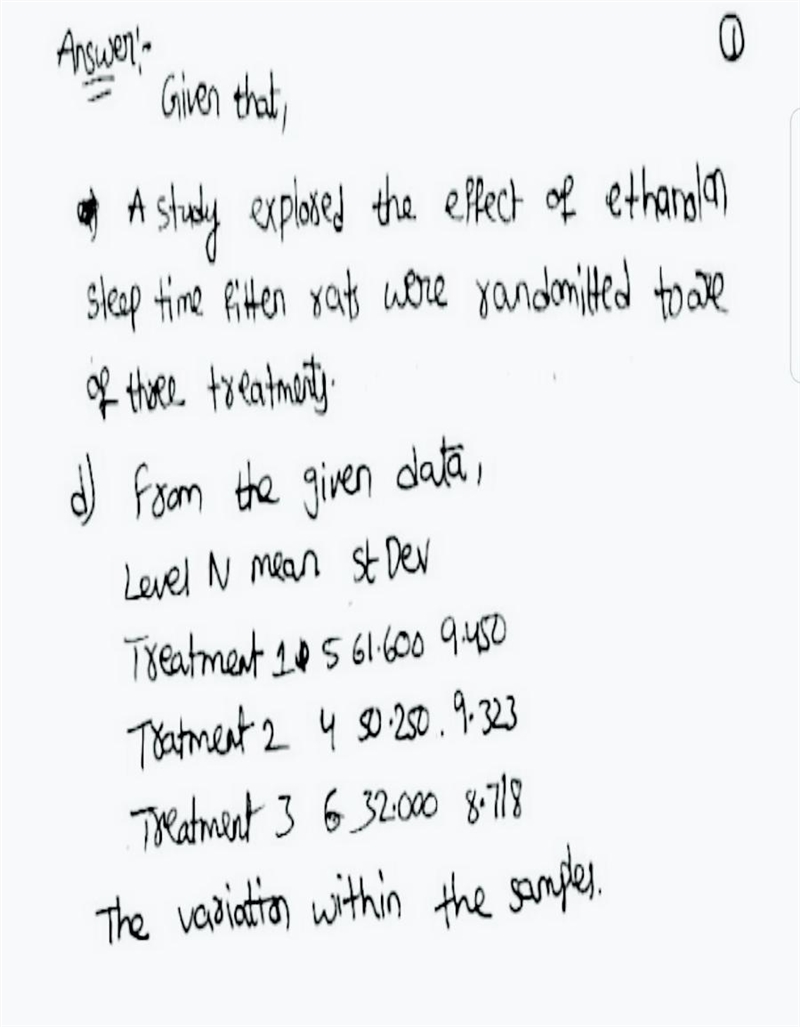 Answer:-
①
Given that,
A study explored the effect of ethanol on
sleep time fitten rats were randomitted to are
of three treatments.
d) From the given data,
Level N mean st Dev
Treatment 1 5 61.600 9.450
Tratment 2 4 50.250. 9.323
Treatment 3 6 32.000 8.718
The variation within the samples.